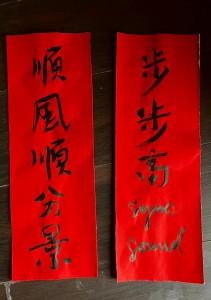 順風順分景
步步高
sync
sound